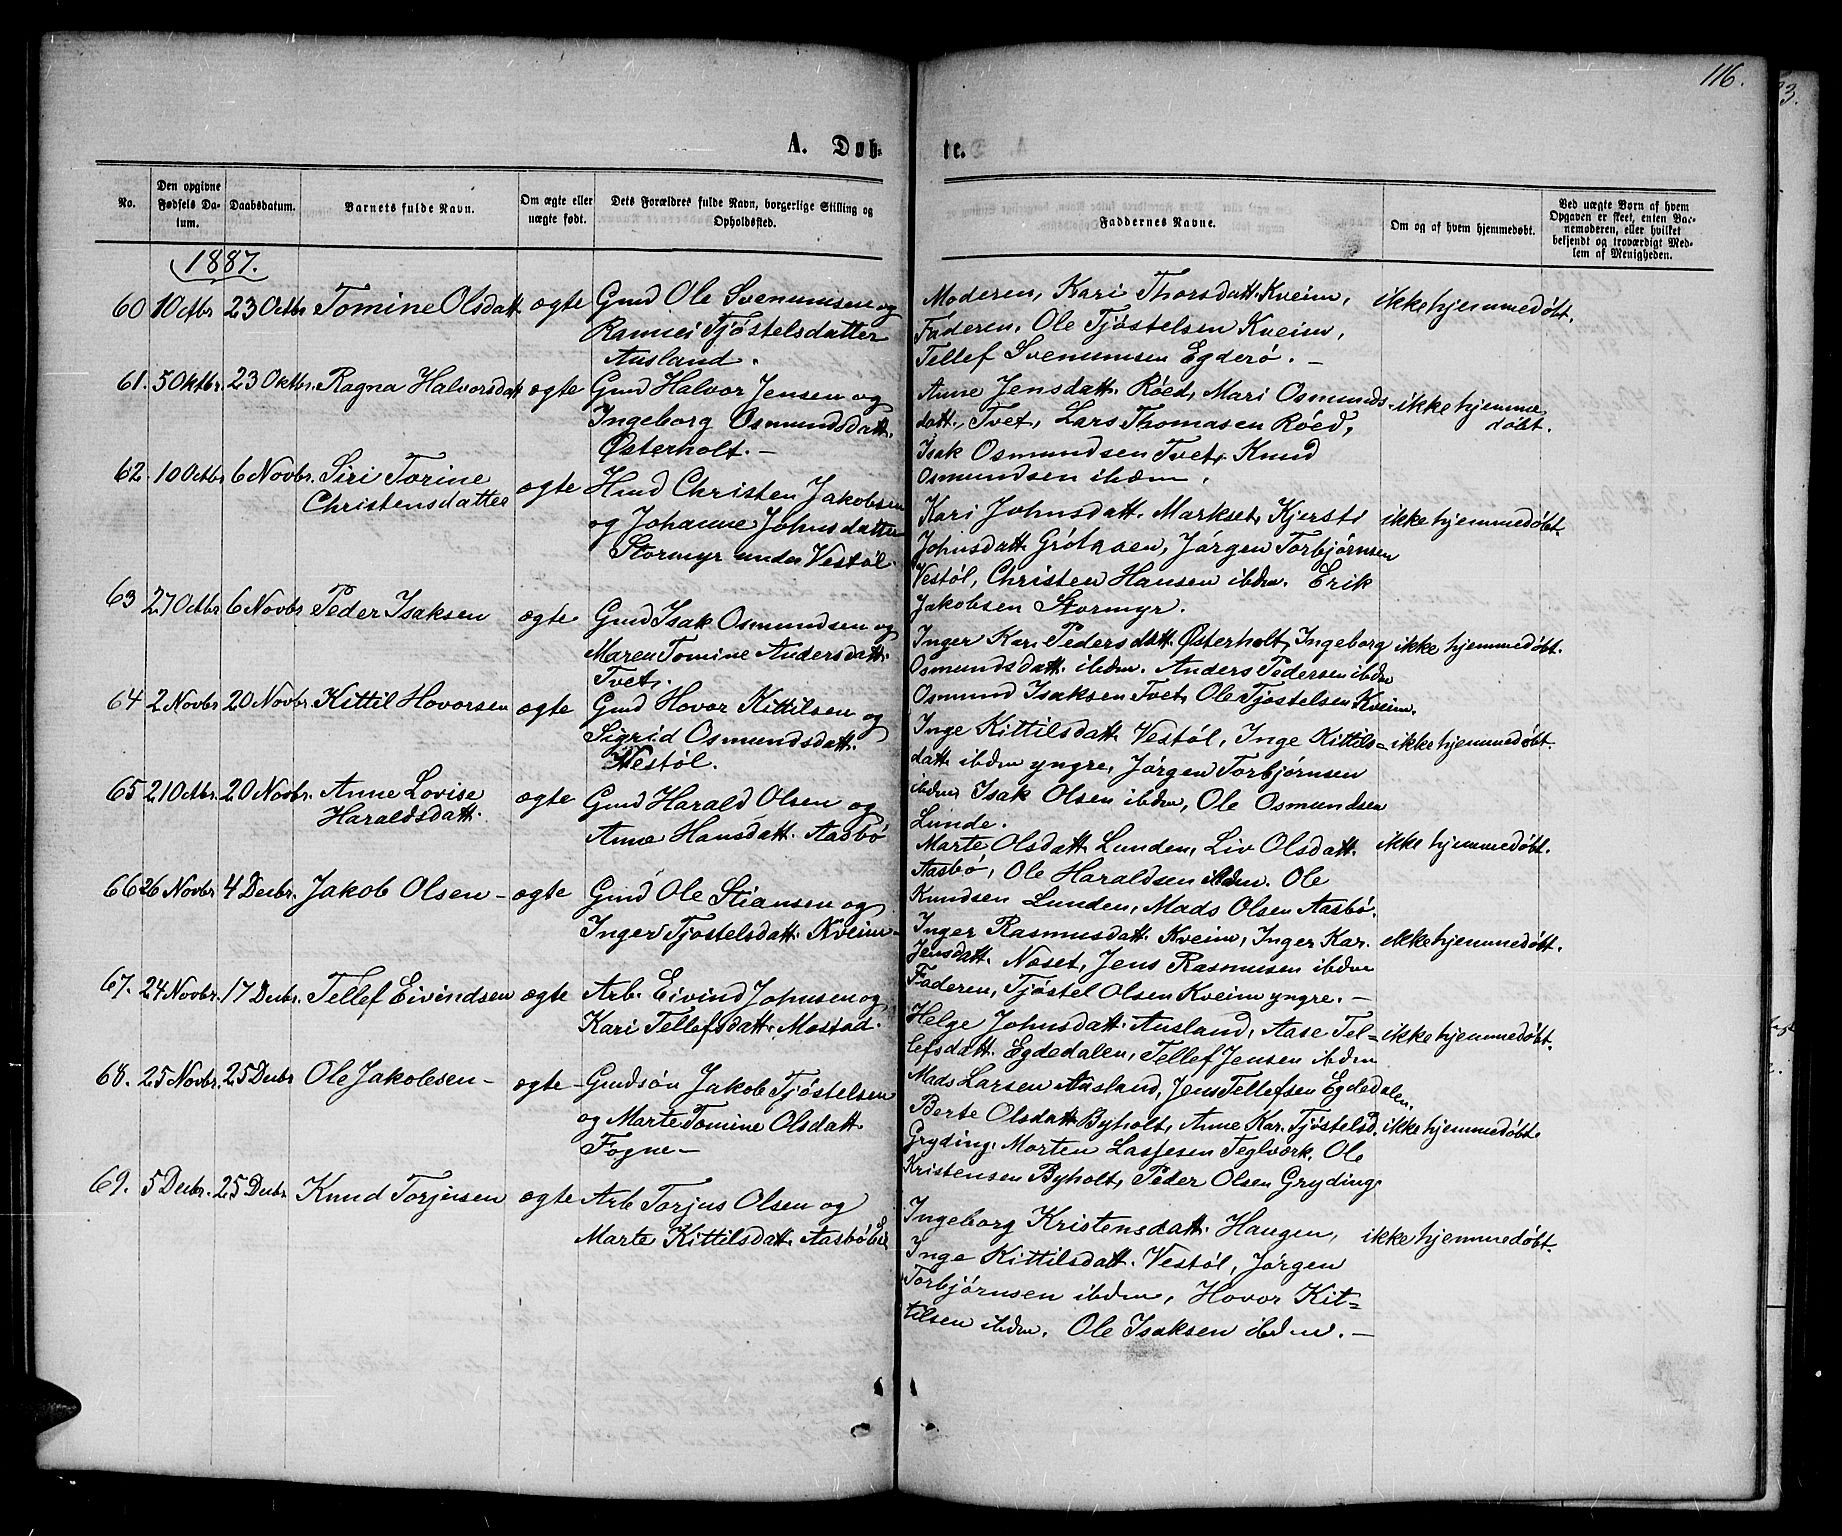 116.
3.
A. Døb-
te.
No.
Den opgivne Fødsels Da-tum.
Daabsdatum.
Barnets fulde Navn.
Om ægte eller uægte født.
Dets Forældres fulde Navn, borgerlige Stilling og Opholdssted.
Faddernes Navne.
Om og af hvem hjemmedøbt.
Ved uægte Børn af hvem Opgaven er skeet, enten Bar-nemoderen, eller hvilket bekjendt og troværdigt Med-lem af Menigheden.
1887.
60 1 Octbr 23 Octbr Tomine Olsdatt ægte Gmd Ole Svenumsen og
Ramsei Tjøstelsdatter
Ausland.
Moderen, Kari Thorsdatt. Kveim, ikke hjemmedøbt.
Faderen, Ole Tjøstelsen Kveim,
Tellef Svenumsen Egderö. —
61. 5 Oktbr. 23 Oktbr. Ragna Halvorsdatt ægte Gmd Halvor Jensen og
Ingeborg Osmundsdatt.
Østerholt. —
Anne Jensdatt. Röed, Mari Osmunds- ikke hjemme
datt. Tvet, Lars Thomasen Röed, döbt.
Isak Osmundsen Tvet, Knud
Osmundsen ibdm.
62. 10 Octbr 6 Novbr. Siri Torine
Christensdatter ægte Hmd Christen Jakobsen
og Johanne Johnsdatter
Stormyr under Vestøl.
Kari Johnsdatt. Markset, Kjersti ikke hjemmedøbt.
Johnsdatt. Grótnoen, Jörgen Torbjørnsen
Vestöl, Christen Hansen ibdm. Erik
Jakobsen Stormyr.
63 27 Octbr 6 Novbr Peder Isaksen ægte Gmd Isak Osmundsen og
Maren Tomine Andersdatt.
Tvet.
Inger Kar. Pedersdatt. Østerholt, Ingeborg ikke hjemmedøbt.
Osmundsdatt. ibdm. Anders Pedersen ibdm
Osmund Isaksen Tvet, Ole Tjøstelsen Kveim.
64 2 Novbr 20 Novbr. Kittil Hovorsen ægte Gmd Hovor Kittilsen og
Sigrid Osmundsdatt.
Westöl.
Inge Kittilsdatt. Vestöl, Inge Kittils= ikke hjemmedøbt.
datt. ibdm yngre, Jörgen Torbjörnsen
ibdm, Isak Olsen ibdm, Ole Osmundsen
Lunde.
65 21 Octbr. 20 Novbr. Anne Lovise
Haraldsdatt. ægte Gmd Harald Olsen og
Anne Hansdatt. Aasbö
Marte Olsdatt. Lunden, Liv Olsdatt. ikke hjemmedøbt.
Aasbö, Ole Haraldsen ibdm. Ole
Knudsen Lunden, Mads Olsen Aasbö.
66 26 Novbr 4 Decbr. Jakob Olsen — ægte Gmd Ole Stiansen og
Inger Tjøstelsdatt. Kveim —
Inger Rasmusdatt. Kveim, Inger Kar. ikke hjemmedøbt.
Jensdatt. Næset, Jens Rasmusen ibdm
Faderen, Tjöstel Olsen Kveim yngre. —
67. 24 Novbr. 17 Decbr. Tellef Eivindsen ægte Arb. Eivind Johnsen og
Kari Tellefsdatt. Mostad.
Helge Johnsdatt. Ausland, Aase Tel= ikke hjemmedøbt.
lefsdatt. Egdedalen, Tellef Jensen ibdm
Mads Larsen Aasland, Jens Tellefsen Egdedalen.
68. 25 Novbr. 25 Decbr Ole Jakobsen — ægte — Gmdsön Jakob Tjöstelsen
og Marte Tomine Olsdatt.
Fogne —
Berte Olsdatt. Byholt, Anne Kar. Tjöstelsd. ikke hjemmedøbt.
Gryding. Morten Lassesen Teglværk. Ole
Kristensen Byholt, Peder Olsen Gryding.
69. 5 Decbr. 25 Decbr. Knud Torjusen ægte Arb Torjus Olsen og
Marte Kittilsdatt. Aasbö
Ingeborg Kristensdatt. Haugen, ikke hjemmedøbt.
Inge Kittilsdatt. Vestöl, Jörgen
Torbjörnsen ibdm, Hovor Kit=
tilsen ibdm. Ole Isaksen ibdm. —